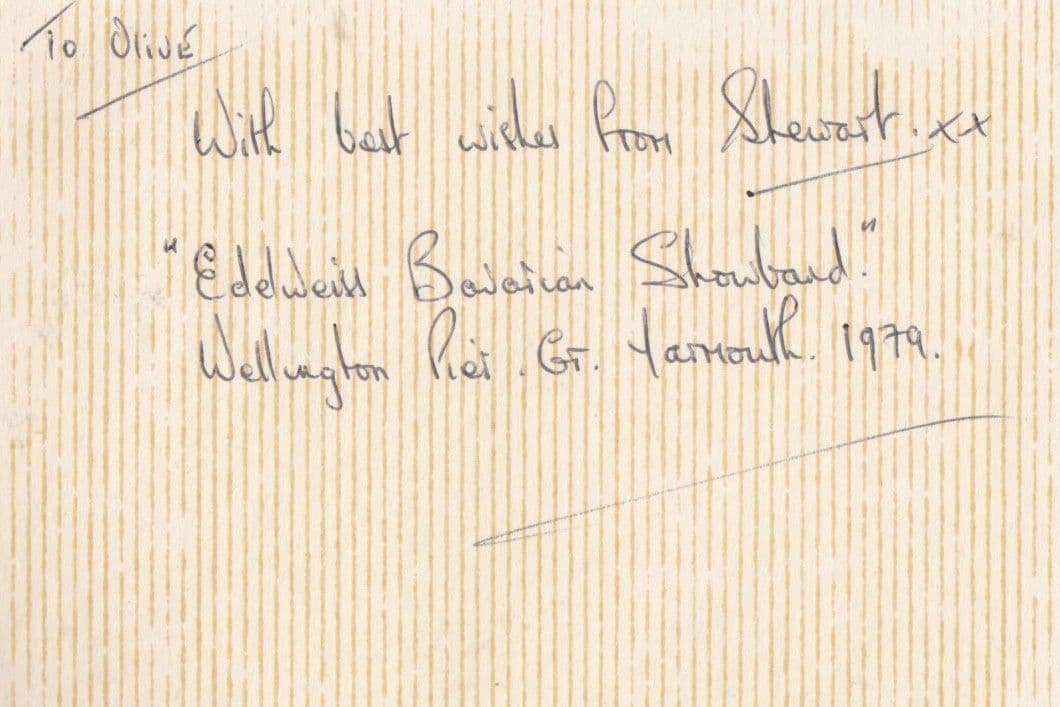 To Olive
With best wishes from Stewart. xx
"Edelweiss Bavarian Showband."
Wellington Pier. Gt. Yarmouth. 1979.